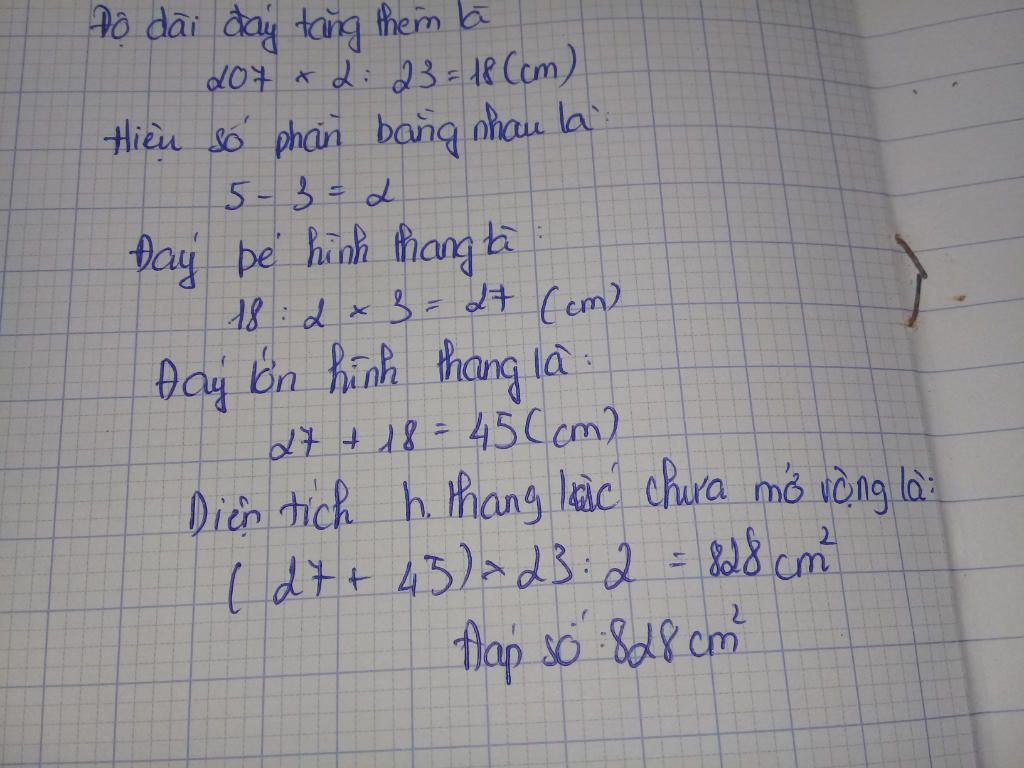 Độ dài đáy tăng thêm là
207 × 2 : 23 = 18 (cm)
Hiệu số phần bằng nhau là:
5 - 3 = 2
Đáy bé hình thang là:
18 : 2 × 3 = 27 (cm)
Đáy lớn hình thang là:
27 + 18 = 45 (cm)
Diện tích h. thang lúc chưa mở rộng là:
( 27 + 45) × 23 : 2 = 828 cm²
Đáp số : 828 cm²